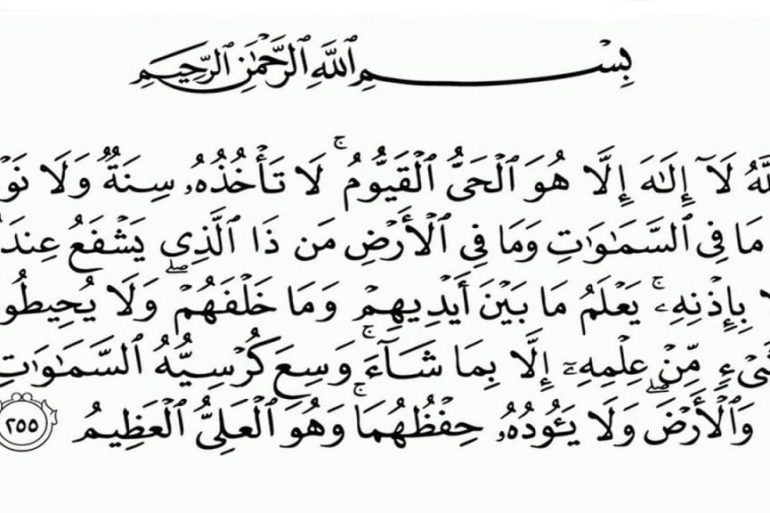 بِسْمِ ٱللَّهِ ٱلرَّحْمَٰنِ ٱلرَّحِيمِ
لَآ إِلَٰهَ إِلَّا هُوَ ٱلْحَىُّ ٱلْقَيُّومُ ۚ لَا تَأْخُذُهُۥ سِنَةٌ وَلَا
مَا فِى ٱلسَّمَٰوَٰتِ وَمَا فِى ٱلْأَرْضِ مَن ذَا ٱلَّذِى يَشْفَعُ
بِإِذْنِهِۦ ۚ يَعْلَمُ مَا بَيْنَ أَيْدِيهِمْ وَمَا خَلْفَهُمْ ۖ وَلَا
مِّنْ عِلْمِهِۦٓ إِلَّا بِمَا شَآءَ ۚ وَسِعَ كُرْسِيُّهُ ٱلسَّمَٰوَٰتِ
وَٱلْأَرْضَ ۖ وَلَا يَـُٔودُهُۥ حِفْظُهُمَا ۚ وَهُوَ ٱلْعَلِىُّ ٱلْعَظِيمُ ٢٥٥